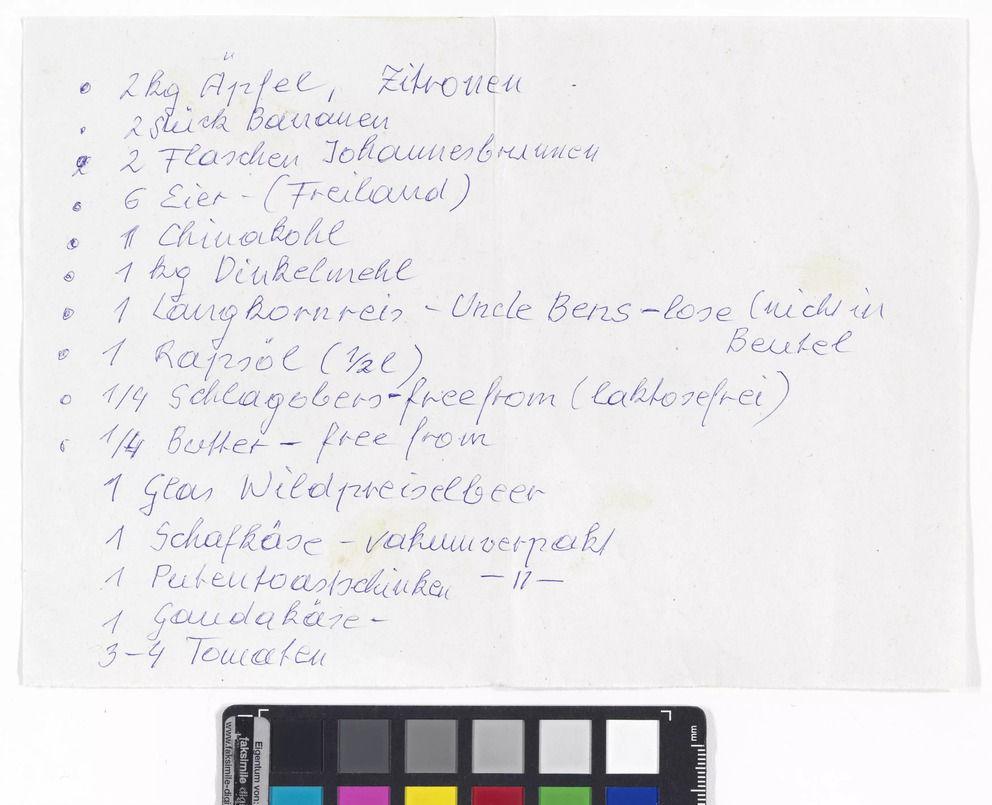 • 2 kg Äpfel, Zitronen
• 2 Stück Bananen
• 2 Flaschen Johannesbrunnen
• 6 Eier - (Freiland)
• 1 Chinakohl
• 1 kg Dinkelmehl
• 1 Langkornreis - Uncle Bens - lose (nicht in
Beutel
• 1 Rapsöl (1/2 l)
• 1/4 Schlagobers - freefrom (laktosefrei)
• 1/4 Butter - free from
1 Glas Wildpreiselbeer
1 Schafkäse - vakuumverpakt
1 Putentoastschinken — 11 —
1 Goudakäse -
3-4 Tomaten
mm
www.faksimile-digi
faksimile-dig
Eigentum von